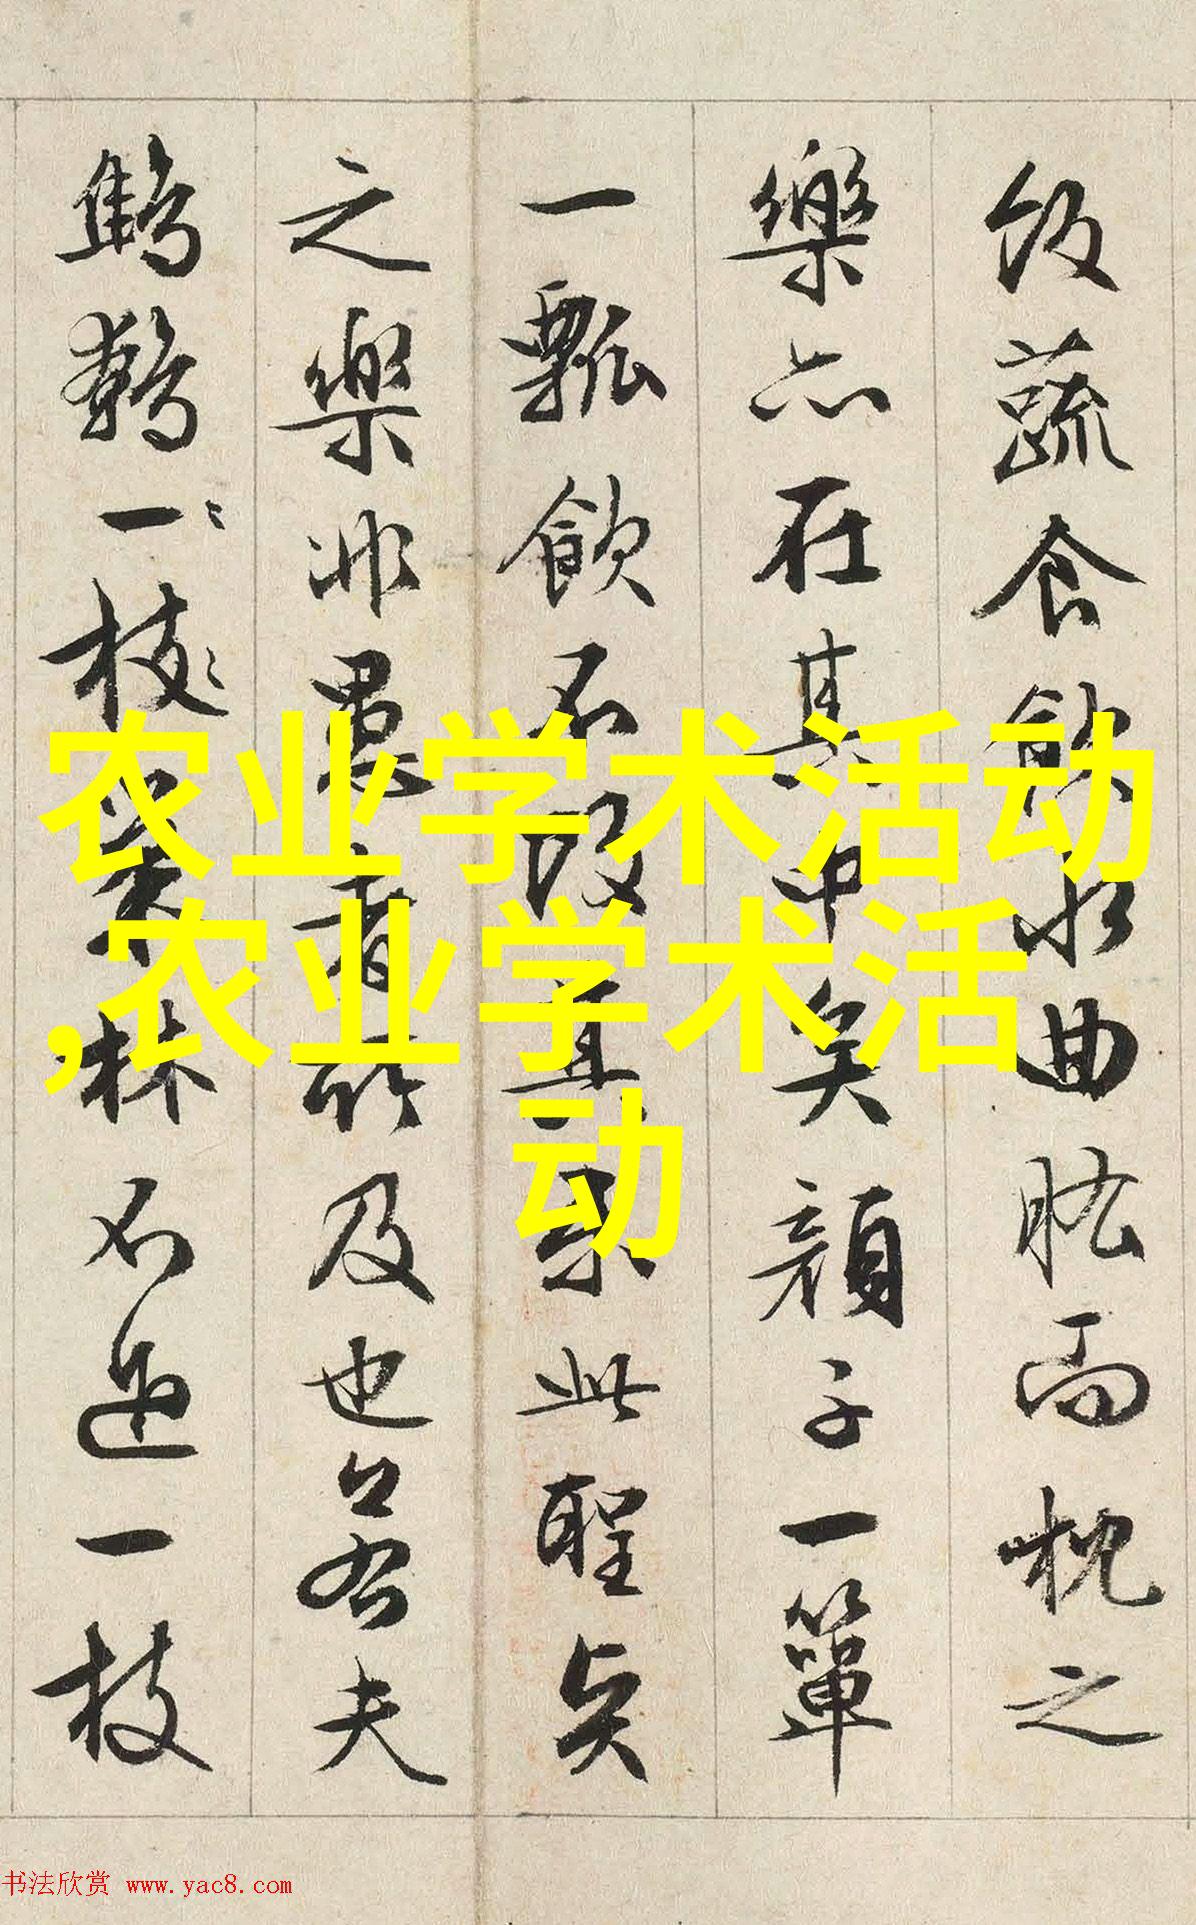 飯蔬食飲水曲肱而枕之
樂亦在其中矣顏子一簞
一瓢飲不改其樂此聖矣
之樂非愚者所及也若夫
鷦鷯一枝巢林不過一枝
农业学术活动
,农业学术活
动
书法欣赏 www.yac8.com